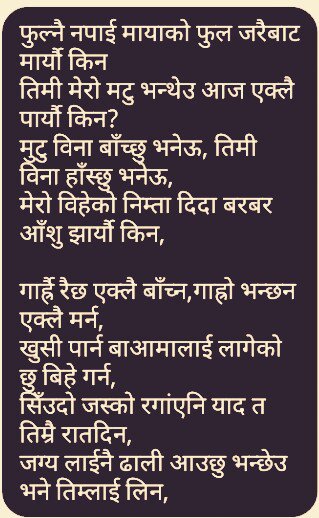 फुल्नै नपाई मायाको फुल जरैबाट
मार्यौ किन
तिमी मेरो मटु भन्थेउ आज एक्लै
पार्यौ किन?
मुटु विना बाँच्छु भनेऊ, तिमी
विना हाँस्छु भनेऊ,
मेरो विहेको निम्ता दिदा बरबर
आँशु झार्यौ किन,
गार्ह्रै रैछ एक्लै बाँच्न,गाह्रो भन्छन
एक्लै मर्न,
खुसी पार्न बाआमालाई लागेको
छु बिहे गर्न,
सिँउदो जस्को रगांएनि याद त
तिम्रै रातदिन,
जग्य लाईनै ढाली आउछु भन्छेउ
भने तिम्लाई लिन,